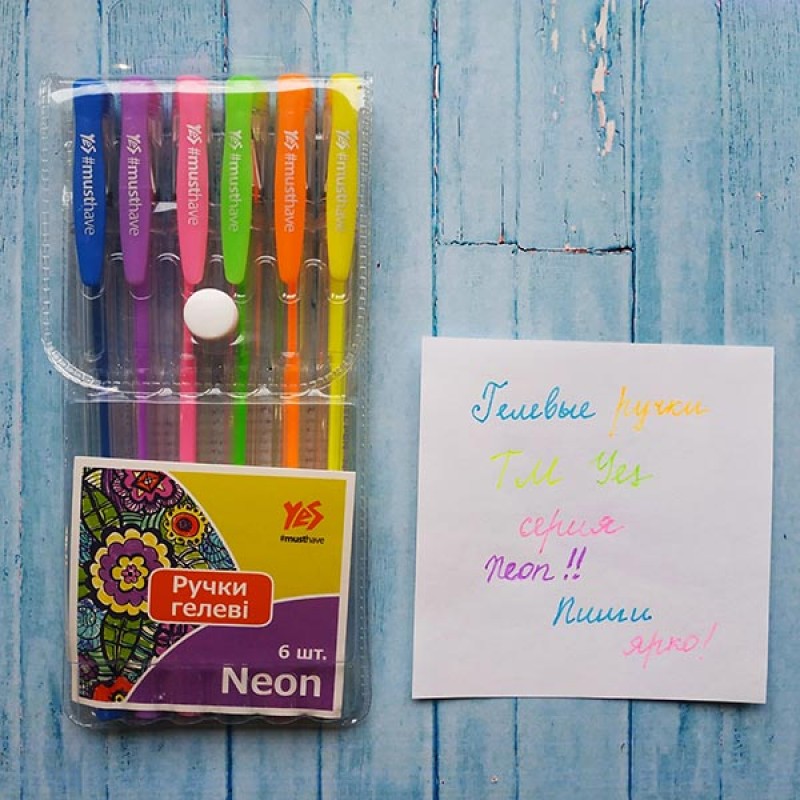 YES #musthave
YES #musthave
YES #musthave
YES #musthave
YES #musthave
YES #musthave
YES
#musthave
Ручки
гелеві
6 шт.
Neon
Гелевые ручки
ТМ Yes
серия
Neon !!
Пиши
ярко!